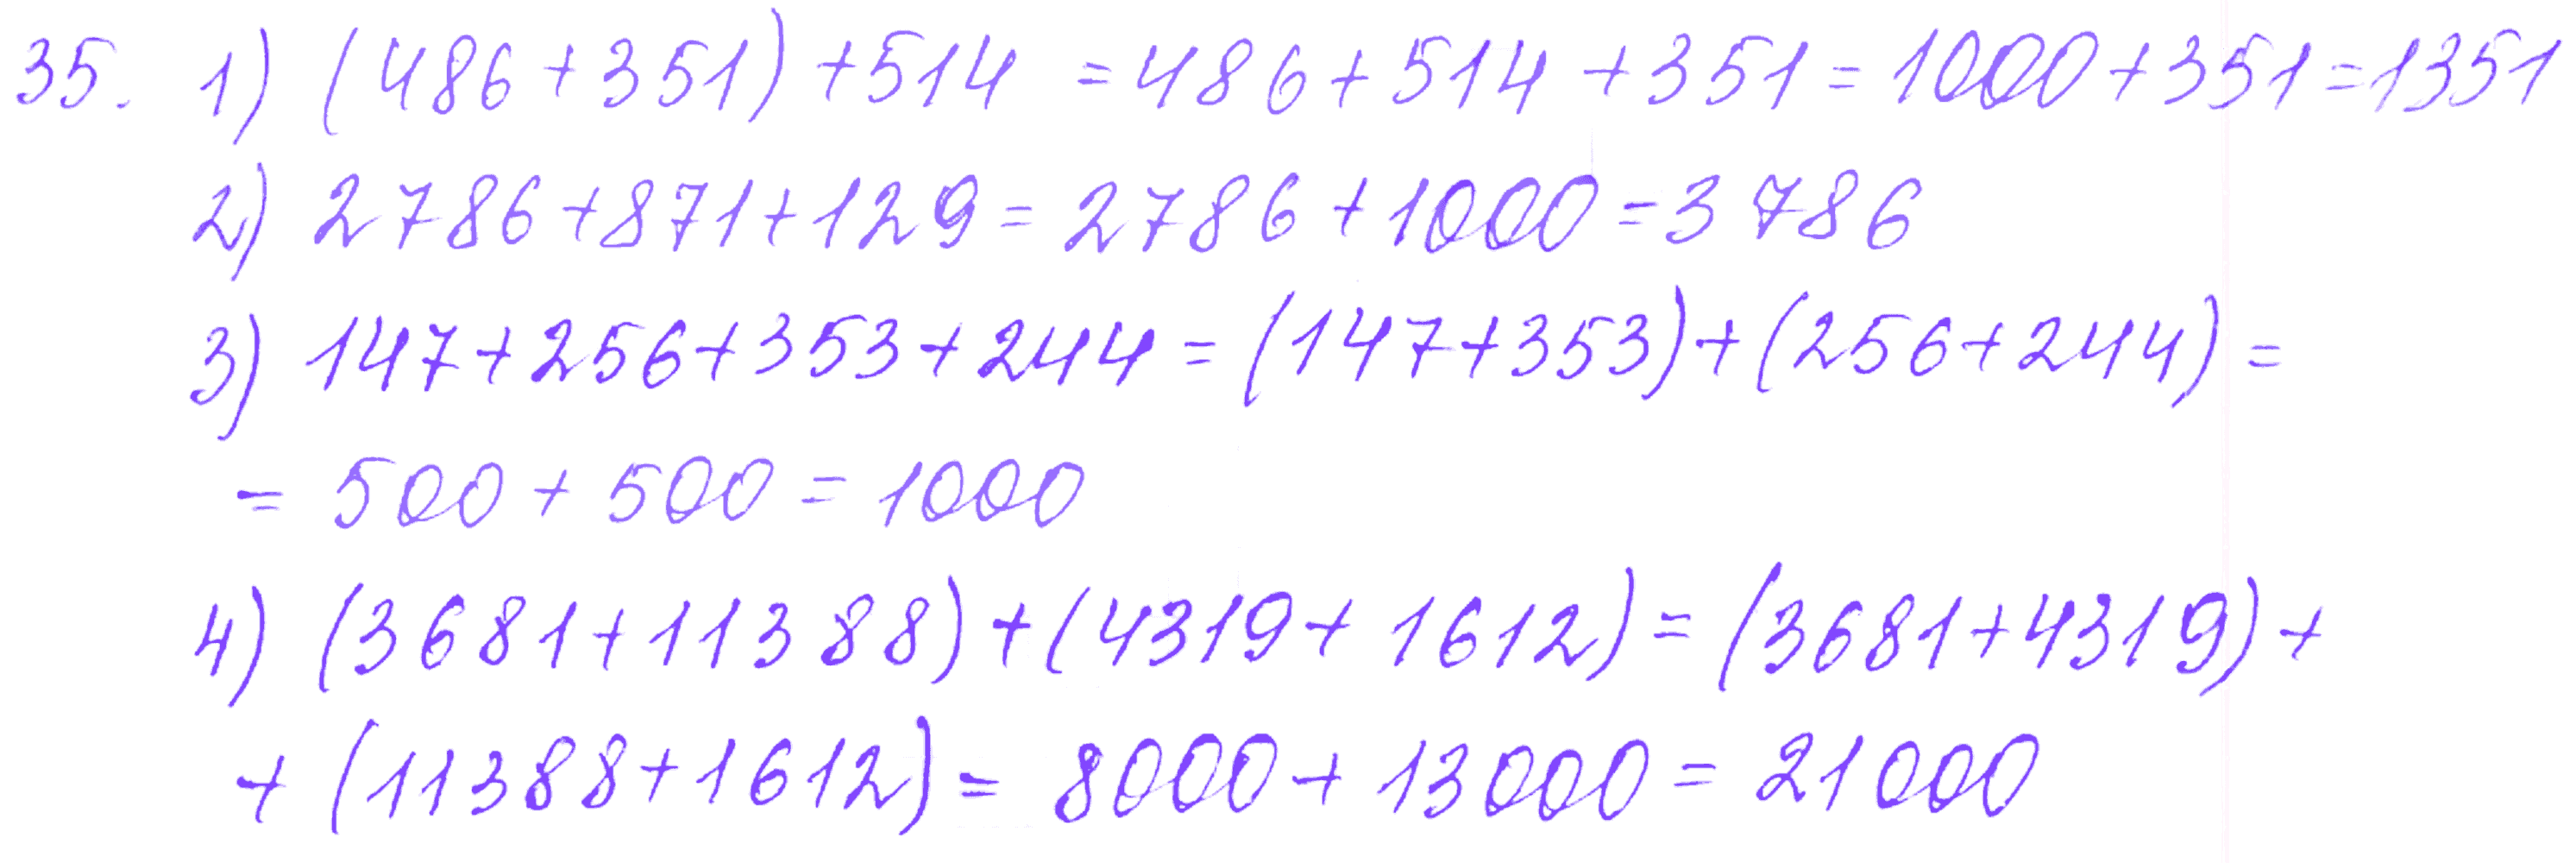 35. 1) (486+351)+514 =486+514+351=1000+351=1351
2) 2786+871+129=2786+1000=3786
3) 147+256+353+244=(147+353)+(256+244)=
= 500+500=1000
4) (3681+11388)+(4319+1612)=(3681+4319)+
+(11388+1612)=8000+13000=21000